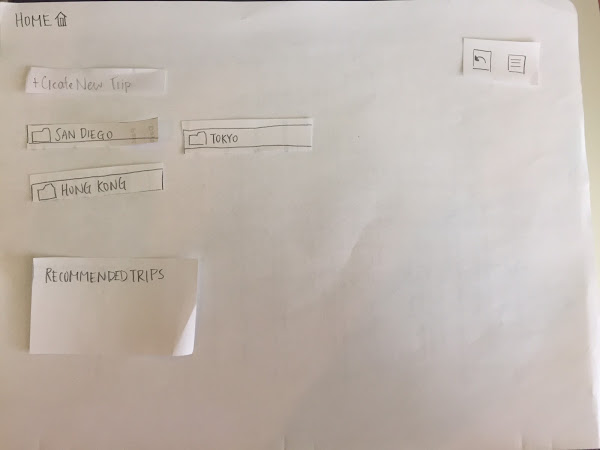 HOME
+Create New Trip
SAN DIEGO
TOKYO
HONG KONG
RECOMMENDED TRIPS